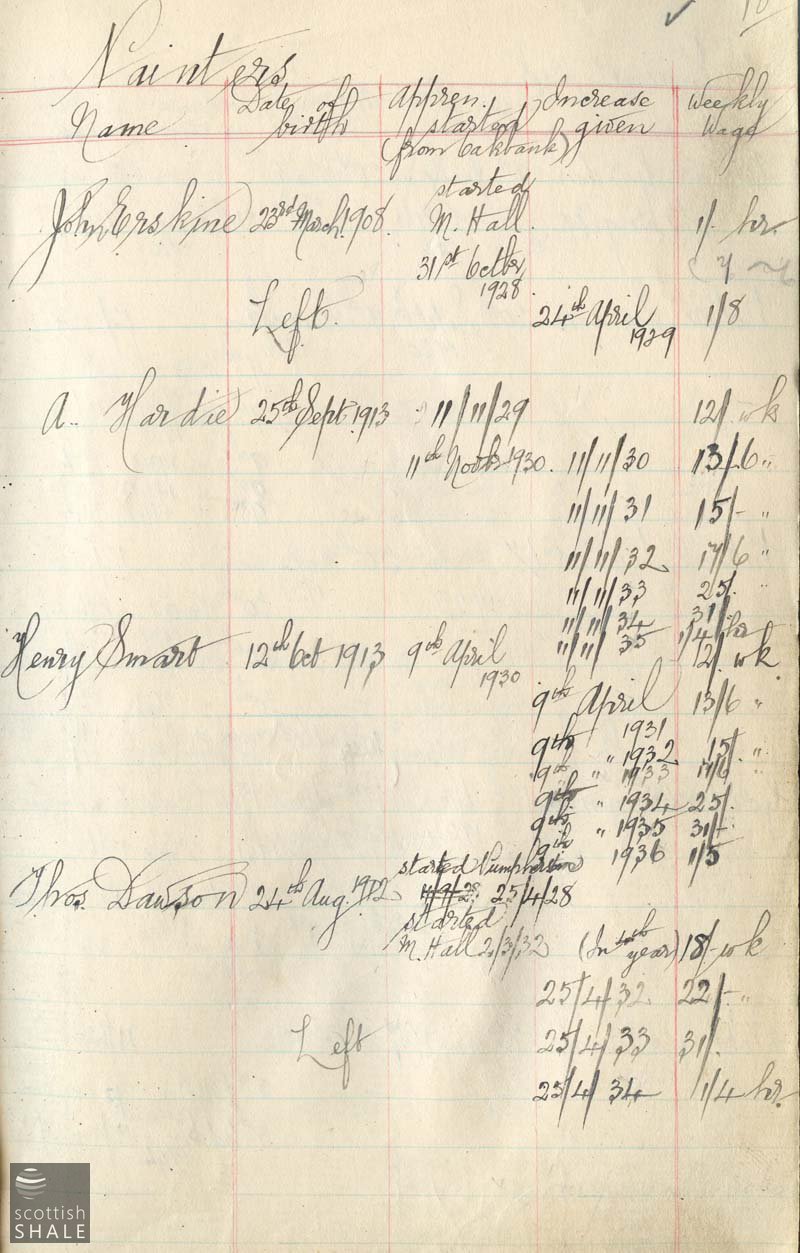 10
Painters
Name Date of birth Appren. started (from Oakbank) Increase given Weekly Wage
started
John Erskine 23rd March 1908. M. Hall. 1/- hr.
31st Octbr
1928.
Left. 24th April 1929 1/8
A.. Hardie 25th Sept. 1913 11/11/29 12/. wk
11th Novbr 1930. 11/11/30 13/6 "
11/11/31 15/- "
11/11/32 17/6 "
11/11/33 25/. "
11/11/34 31/
11/11/35 1/4 hr
Henry Smart 12th Oct 1913 9th April 1930 12/. wk
9th April 1931 13/6 "
9th " 1932 15/. "
9th " 1933 17/6 "
9th " 1934 25/.
9th " 1935 31/-
9th 1936 1/5
started Pumpherston
Thos. Dawson 24th Aug. 1912 25/4/28
started
M. Hall 2/3/32 (In 4th year) 18/- wk
25/4/32 22/- "
Left 25/4/33 31/.
25/4/34 1/4 hr.
scottish
SHALE